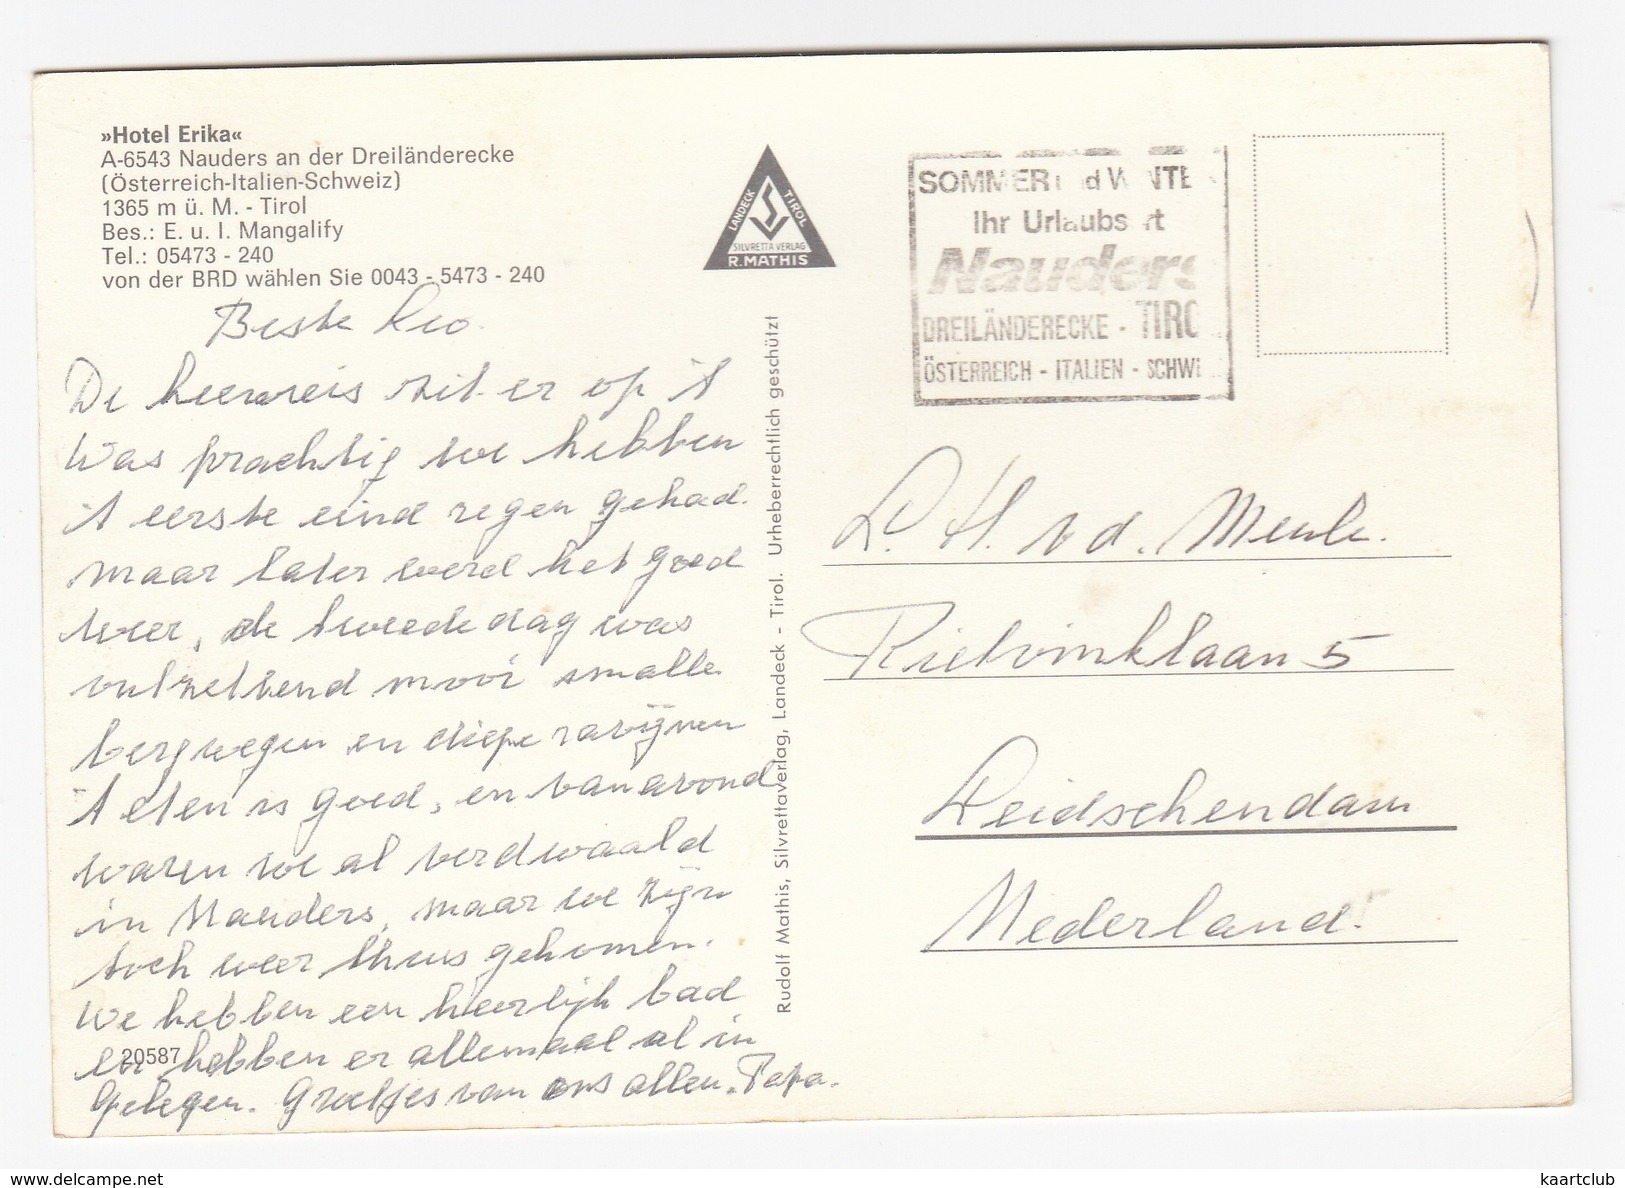 »Hotel Erika«
A-6543 Nauders an der Dreiländerecke
(Österreich-Italien-Schweiz)
1365 m ü. M. - Tirol
Bes.: E. u. I. Mangalify
Tel.: 05473 - 240
von der BRD wählen Sie 0043 - 5473 - 240
Beste Leo.
De heenreis zit er op 't
was prachtig we hebben
't eerste eind regen gehad.
maar later werd het goed
weer, de tweede dag was
ontzettend mooi smalle
bergwegen en diepe ravijnen
't eten is goed, en vanavond
waren we al verdwaald
in Nauders, maar we zijn
toch weer thuis gekomen.
We hebben een heerlijk bad
en hebben er allemaal al in
gelegen. Groetjes van ons allen. Papa.
20587
LANDECK TIROL
SILVRETTA VERLAG
R. MATHIS
Rudolf Mathis, Silvrettaverlag, Landeck - Tirol. Urheberrechtlich geschützt
SOMMER und WINTE
Ihr Urlaubsort
Nauders
DREILÄNDERECKE - TIRO
ÖSTERREICH - ITALIEN - SCHWE
L. H. v d. Meule.
Rietvinklaan 5
Leidschendam
Nederland.
kaartclub
delcampe.net